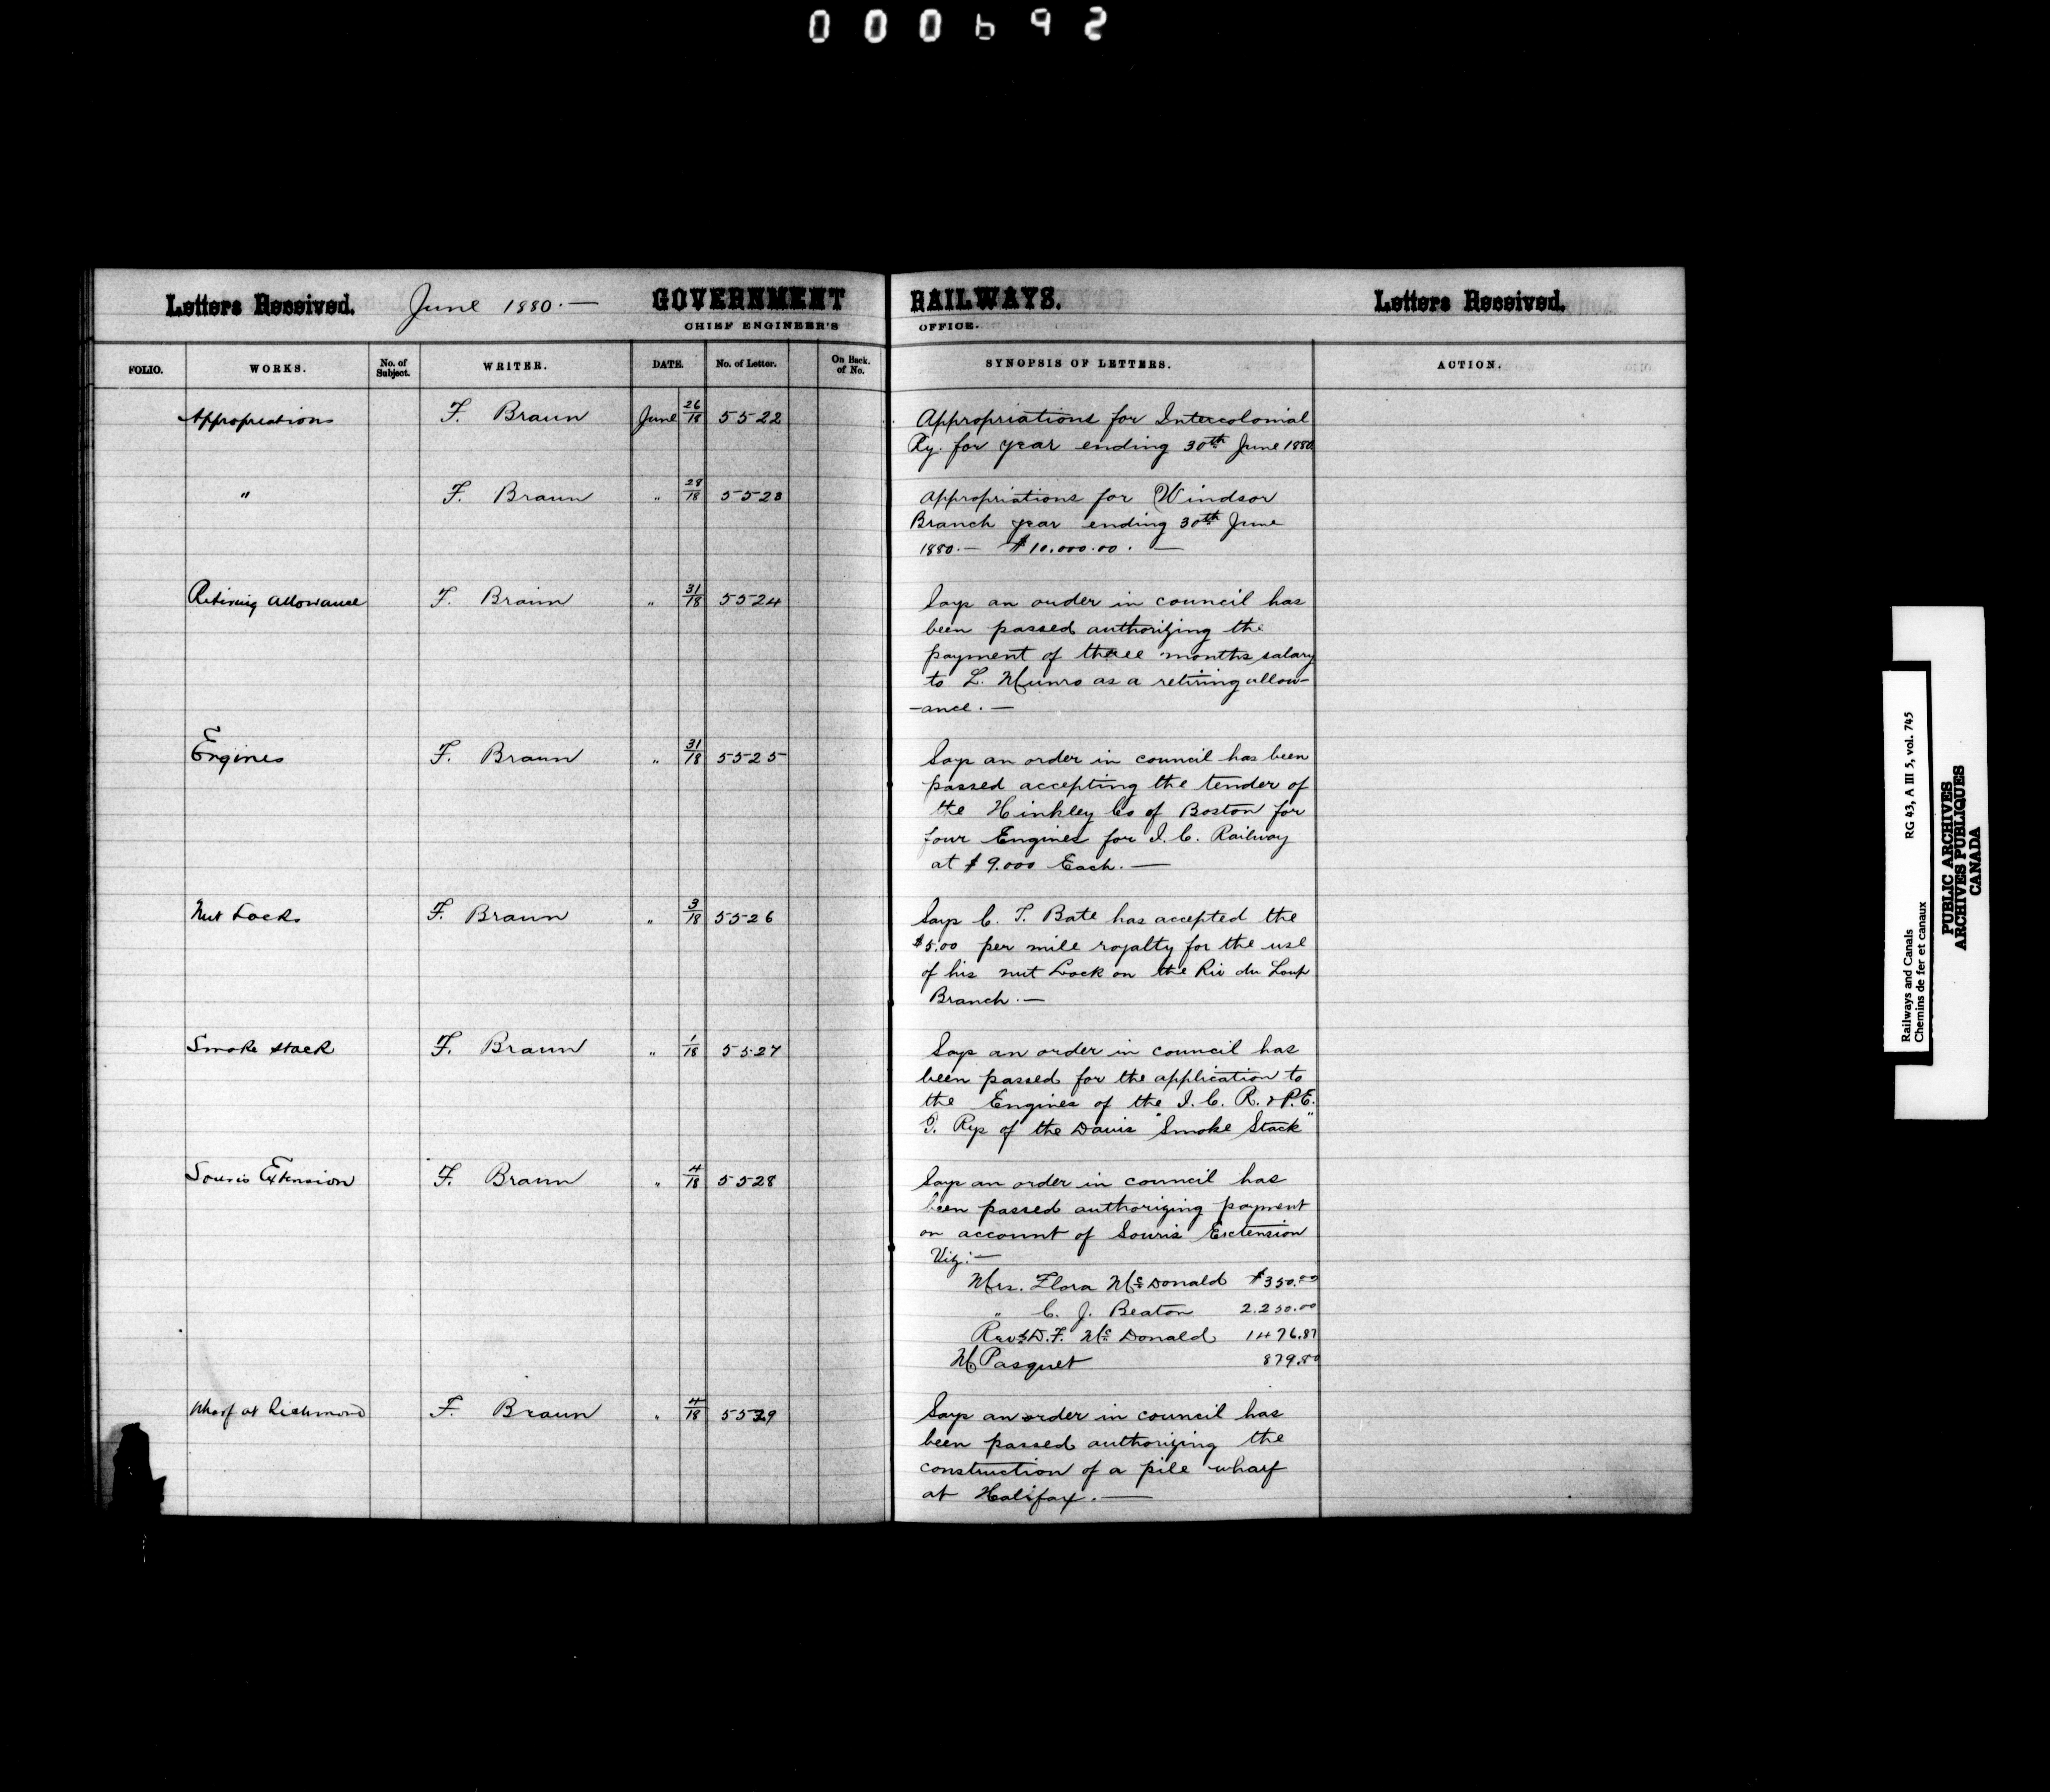 000692
Letters Received. June 1880.— GOVERNMENT RAILWAYS. Letters Received.
CHIEF ENGINEER'S OFFICE.
FOLIO. WORKS. No. of Subject. WRITER. DATE. No. of Letter. On Back of No. SYNOPSIS OF LETTERS. ACTION.
Appropriations F. Braun June 26/18 5522 Appropriations for Intercolonial
Ry. for year ending 30th June 1880
" F. Braun " 29/18 5523 Appropriations for Windsor
Branch year ending 30th June
1880.— $10.000.00. —
Retiring Allowance F. Braun " 31/18 5524 Says an order in council has
been passed authorizing the
payment of three months salary
to L. Munro as a retiring allow-
-ance. —
Engines F. Braun " 31/18 5525 Says an order in council has been
passed accepting the tender of
the Hinkley Co of Boston for
four Engines for I. C. Railway
at $9.000 Each. —
Nut Locks F. Braun " 3/18 5526 Says C. T. Bate has accepted the
$5.00 per mile royalty for the use
of his nut Lock on the Riv du Loup
Branch. —
Smoke stack F. Braun " 1/18 5527 Says an order in council has
been passed for the application to
the Engines of the I. C. R. & P.E.
I. Rys of the Davis "Smoke Stack"
Souris Extension F. Braun " 4/18 5528 Says an order in council has
been passed authorizing payment
on account of Souris Extension
Viz:—
Mrs. Flora McDonald $350.00
" C. J. Beaton 2.250.00
Revd D. F. McDonald 1476.87
M Pasquet 879.80
Wharf at Richmond F. Braun " 4/18 5529 Says an order in council has
been passed authorizing the
construction of a pile wharf
at Halifax. —
Railways and Canals RG 43, A III 5, vol. 745
Chemins de fer et canaux
PUBLIC ARCHIVES
ARCHIVES PUBLIQUES
CANADA